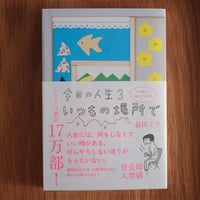 今日の人生3
いつもの場所で
益田ミリ
シリーズ累計
17万部!
人生には、何もしなくて
いい時がある。
ぼんやりしないほうが
もったいない。
発売即
大増刷!